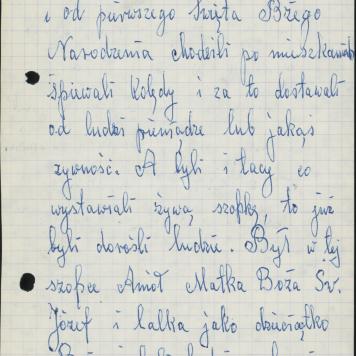 i od pierwszego święta Bżego
Narodzenia chodzili po mieszkaniach
śpiewali kolędy i za to dostawali
od ludzi pieniądze lub jakąś
żywność. A byli i tacy co
wystawiali żywą szopkę, to już
byli dorośli ludzie. Był w tej
szopce Anioł Matka Boża Św.
Józef i lalka jako dzieciątko